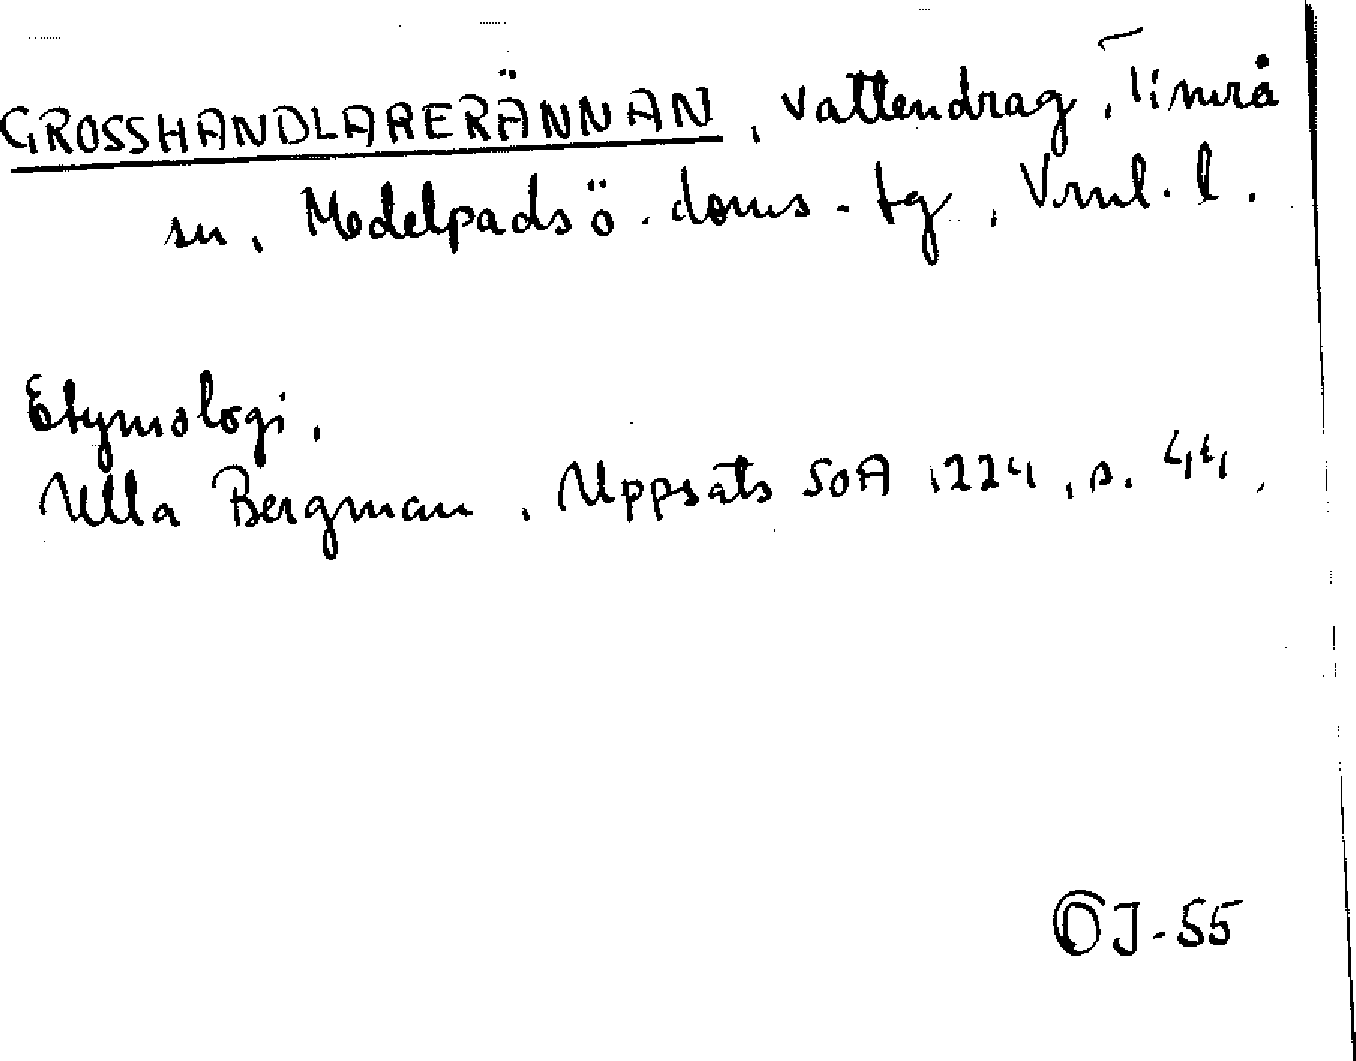 GROSSHANDLARERÄNNAN, vattendrag, Timrå
sn, Medelpads ö. doms. tg, Vrnl. l.
Etymologi,
Ulla Bergman, Uppsats SOA 1224, s. 44,
OJ-55